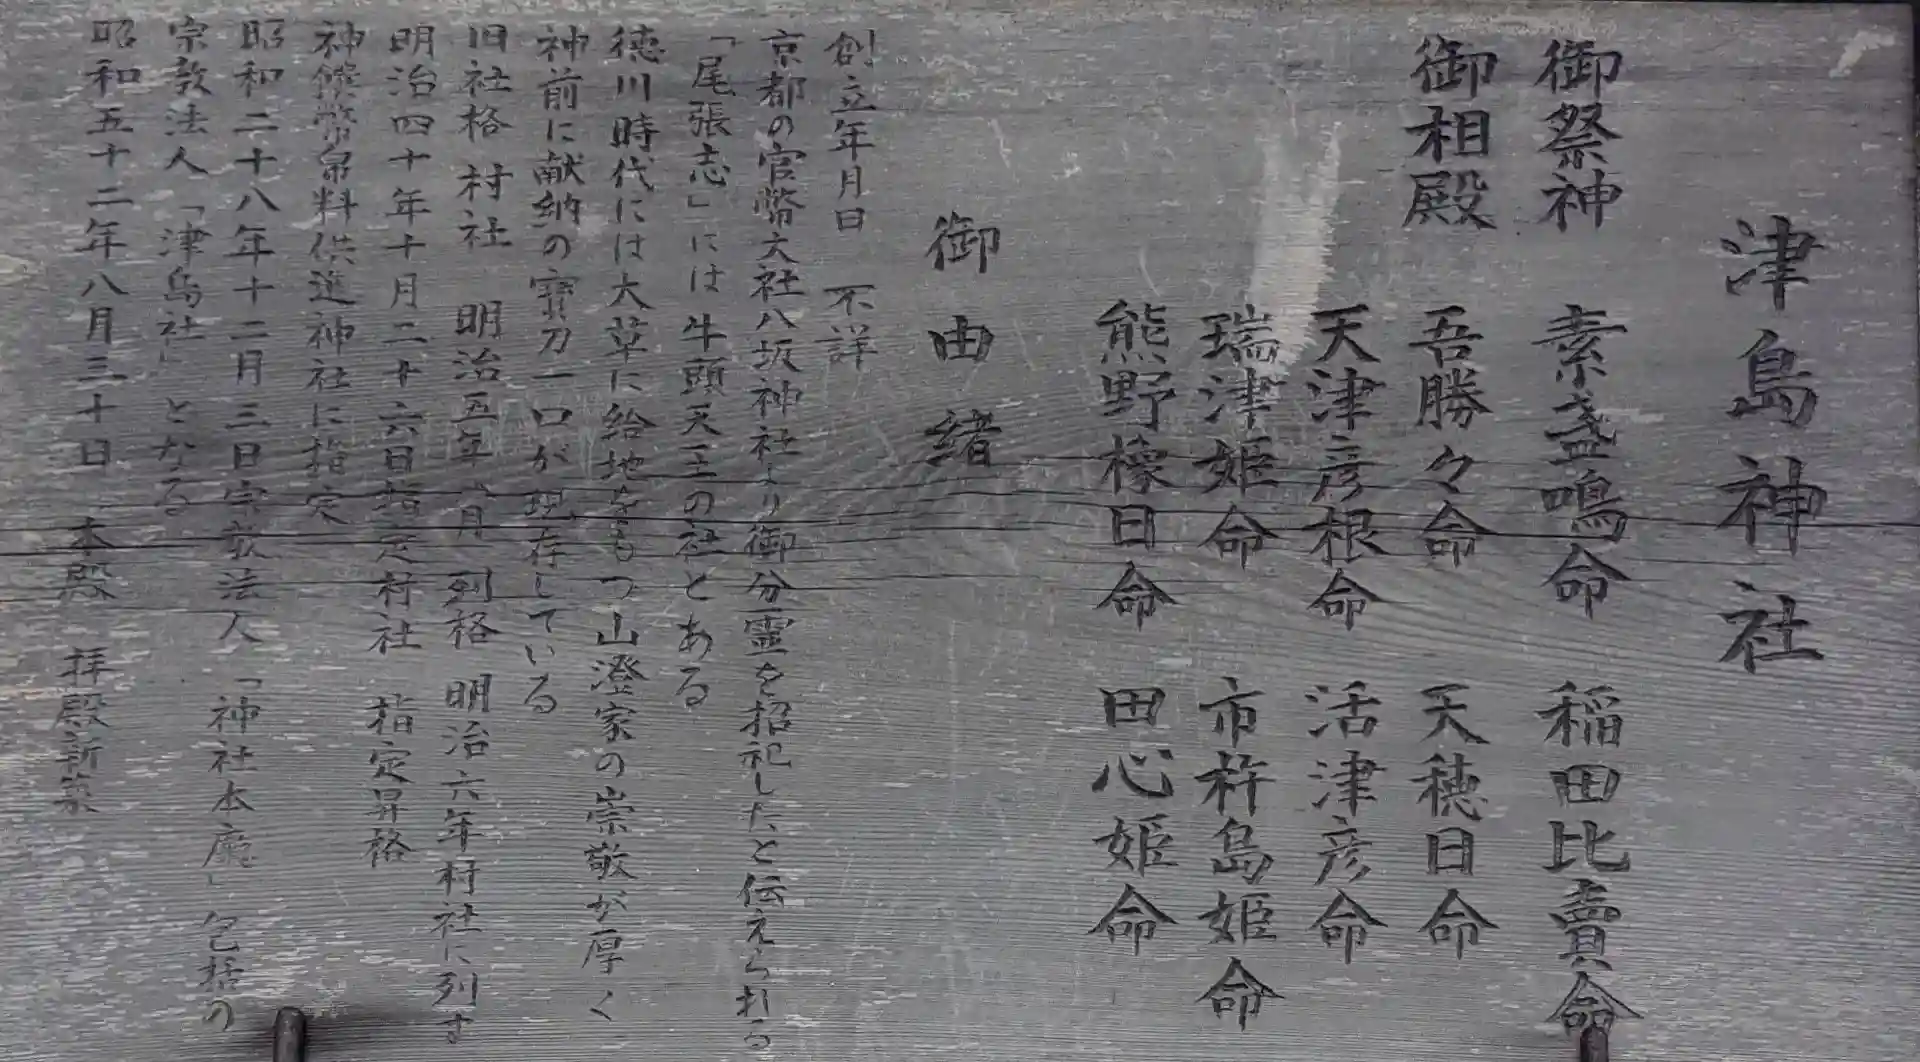 津島神社
御祭神　素盞鳴命　稲田比賣命
御相殿　吾勝々命　天穂日命
天津彦根命　活津彦命
瑞津姫命　市杵島姫命
熊野櫲日命　田心姫命
御由緒
創立年月日　不詳
京都の官幣大社八坂神社より御分霊を招祀したと伝えられる
「尾張志」には 牛頭天王の社とある
徳川時代には大草に給地をもつ山澄家の崇敬が厚く
神前に献納の寶刀一口が現存している
旧社格 村社　明治五年 六月 列格 明治六年村社に列す
明治四十年十月二十六日指定村社　指定昇格
神饌幣帛料供進神社に指定
昭和二十八年十二月三日宗教法人「神社本廳」包括の
宗教法人「津島社」となる
昭和五十二年八月三十日　本殿　拝殿新築